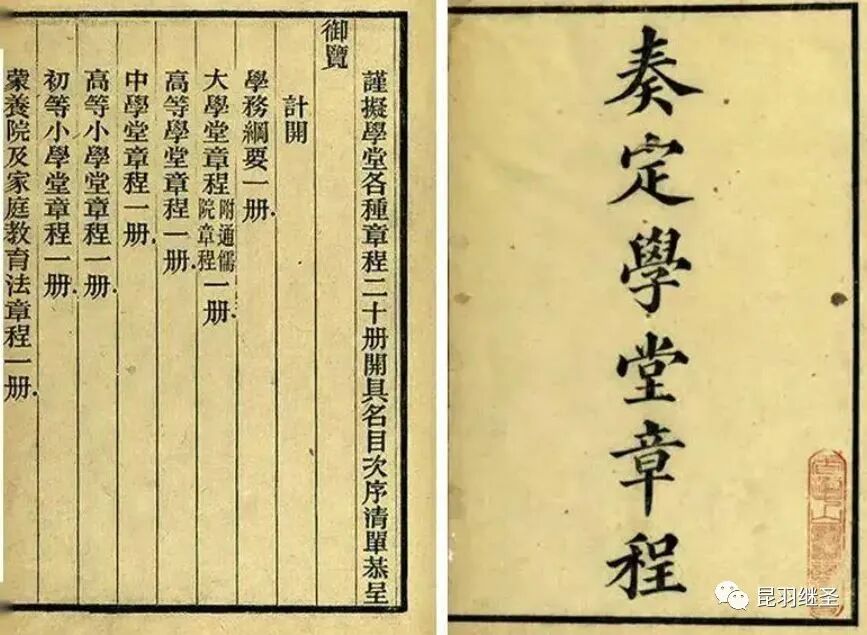 奏定學堂章程
謹擬學堂各種章程二十册開具名目次序清單恭呈
御覽
計開
學務綱要一册
大學堂章程附通儒院章程一册
高等學堂章程一册
中學堂章程一册
高等小學堂章程一册
初等小學堂章程一册
蒙養院及家庭教育法章程一册
昆羽继圣